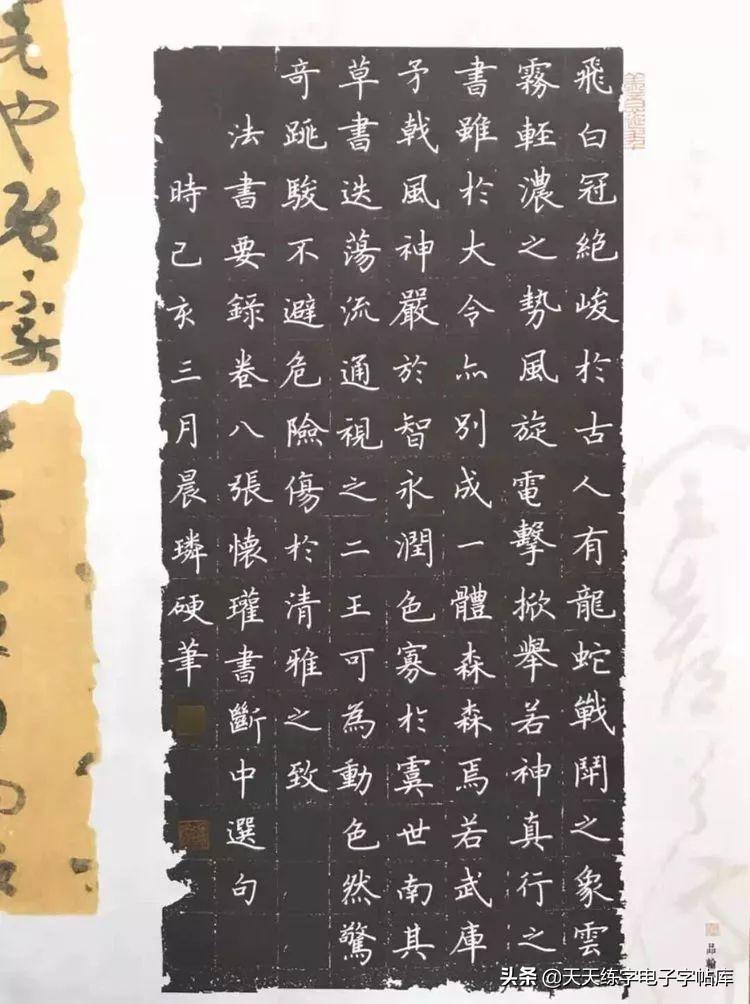 飛白冠絕峻於古人有龍蛇戰鬦之象雲
霧輕濃之勢風旋電擊掀舉若神真行之
書雖於大令亦別成一體森森焉若武庫
矛戟風神嚴於智永潤色寡於虞世南其
草書迭蕩流通視之二王可為動色然驚
奇跳駿不避危險傷於清雅之致
法書要錄卷八張懷瓘書斷中選句
時己亥三月晨璘硬筆
头条 @天天练字电子字帖库